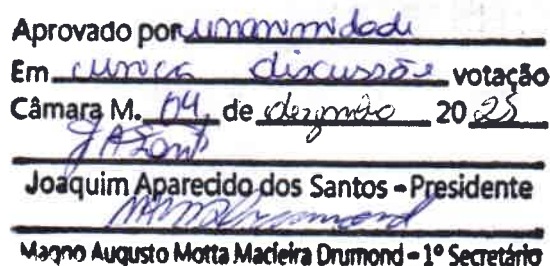 Aprovado por unanimidade
Em única discussão votação
Câmara M. 04 de dezembro 2025
JASantos
Joaquim Aparecido dos Santos - Presidente
Magno Augusto Motta Macieira Drumond - 1º Secretário